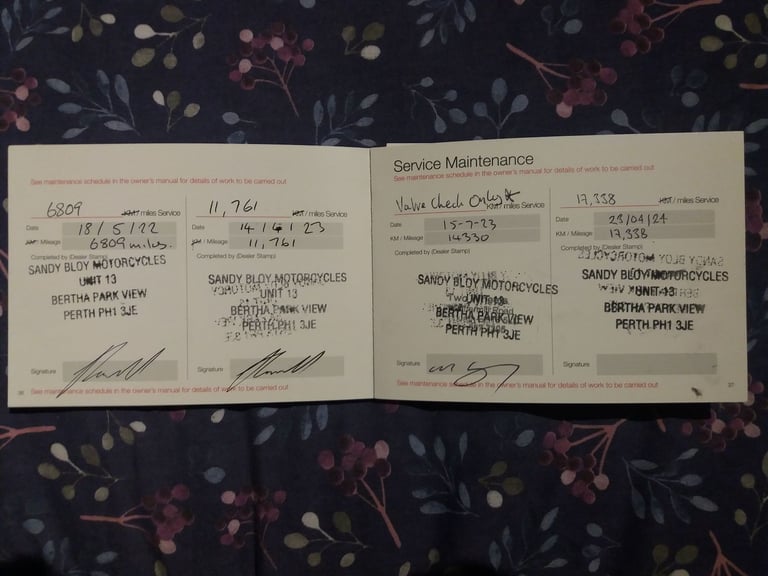 See maintenance schedule in the owner's manual for details of work to be carried out
6809 KM / miles Service
Date 18/5/22
KM / Mileage 6809 miles.
Completed by (Dealer Stamp)
SANDY BLOY MOTORCYCLES
UNIT 13
BERTHA PARK VIEW
PERTH PH1 3JE
Signature
36
11,761 KM / miles Service
Date 14/4/23
KM / Mileage 11,761
Completed by (Dealer Stamp)
SANDY BLOY MOTORCYCLES
UNIT 13
BERTHA PARK VIEW
PERTH PH1 3JE
Signature
See maintenance schedule in the owner's manual for details of work to be carried out
Service Maintenance
See maintenance schedule in the owner's manual for details of work to be carried out
Valve Check Only* KM / miles Service
Date 15-7-23
KM / Mileage 14330
Completed by (Dealer Stamp)
SANDY BLOY MOTORCYCLES
UNIT 13
BERTHA PARK VIEW
PERTH PH1 3JE
Signature
17,338 KM / miles Service
Date 23/04/24
KM / Mileage 17,338
Completed by (Dealer Stamp)
SANDY BLOY MOTORCYCLES
UNIT 13
BERTHA PARK VIEW
PERTH PH1 3JE
Signature
See maintenance schedule in the owner's manual for details of work to be carried out
37